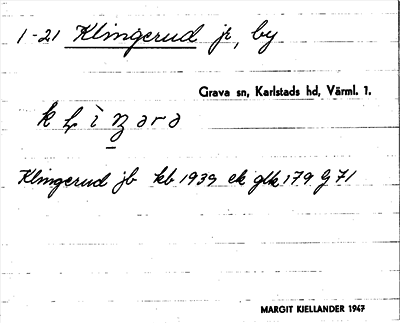 1-21 Klingerud jr, by
Grava sn, Karlstads hd, Värml. l.
Klingerud jb kb 1939 ek glk 179 G 71
MARGIT KIELLANDER 1947